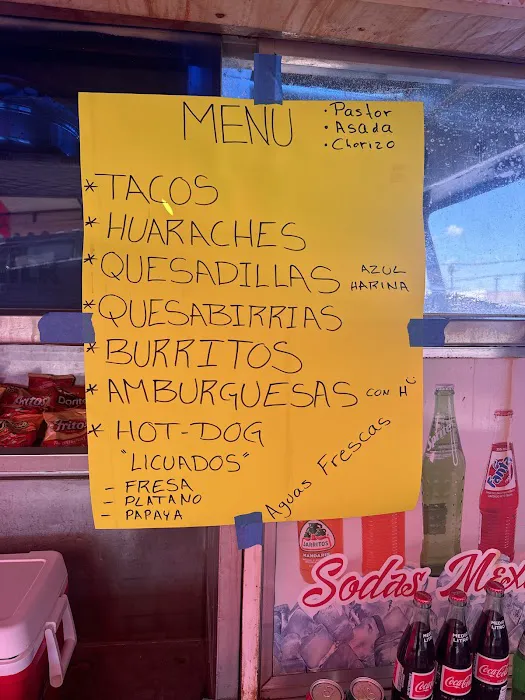 MENU
· Pastor
· Asada
· Chorizo
* TACOS
* HUARACHES
* QUESADILLAS AZUL HARINA
* QUESABIRRIAS
* BURRITOS
* AMBURGUESAS CON H
* HOT-DOG
"LICUADOS"
- FRESA
- PLATANO
- PAPAYA
Aguas Frescas
Doritos
JARRITOS
MANDARIN
Fanta
Sodas Mex
MEDIO LITRO
MEDIO LITRO
MEDIO LITRO
Coca-Cola
Coca-Cola
Coca-Cola